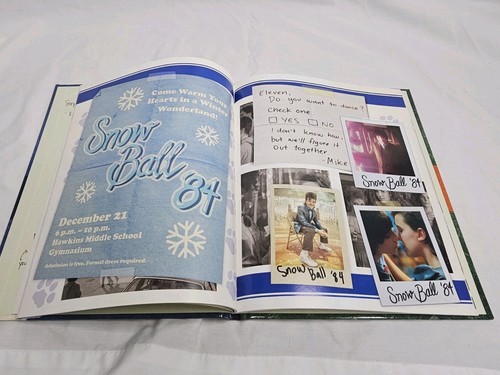 Come Warm Your
Hearts in a Winter
Wonderland!
Snow
Ball
'84
December 21
6 p.m. – 10 p.m.
Hawkins Middle School
Gymnasium
Admission is free. Formal dress required.
Eleven,
Do you want to dance?
Check one
YES NO
I don't know how,
but we'll figure it
out together
-Mike
Snow Ball '84
Snow Ball '84
Snow Ball '84